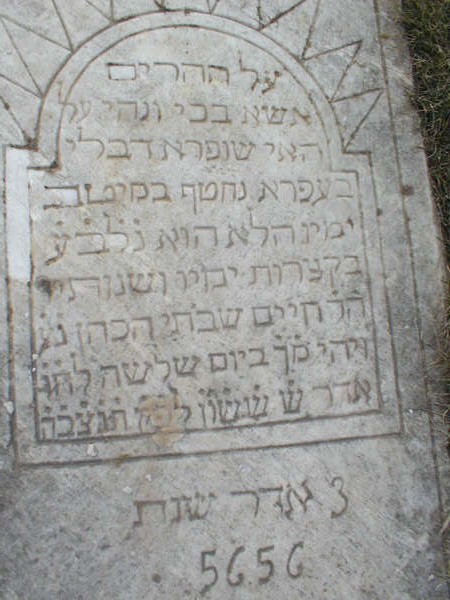 על ההרים
אשא בכי ונהי על
האי שופרא דבלי
בעפרא נחטף במיטב
ימיו הלא הוא נלב״ע
בקצרות ימיו ושנותיו
חיים שבתי הכהן
ויהי מך ביום שלשה לחד׳
אדר ש ששון
3 אדר שנת
5656